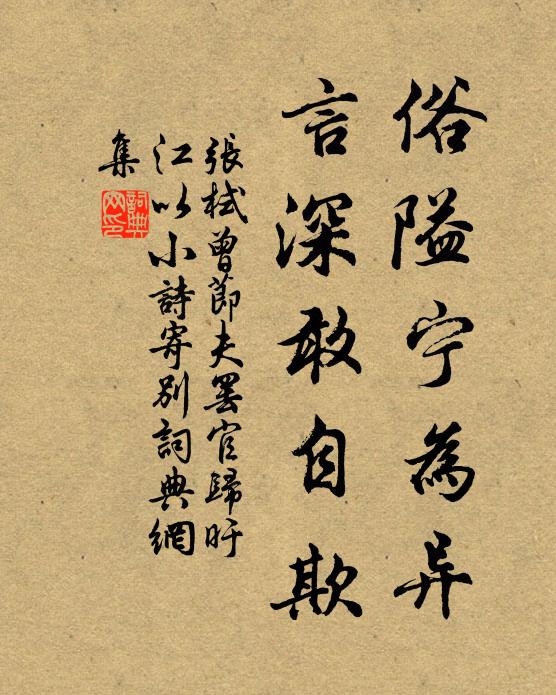 俗隘宁為异
言深敢自欺
張栻曾節夫罢官歸旴
江以小詩寄別詞典網
集
詞典
网印